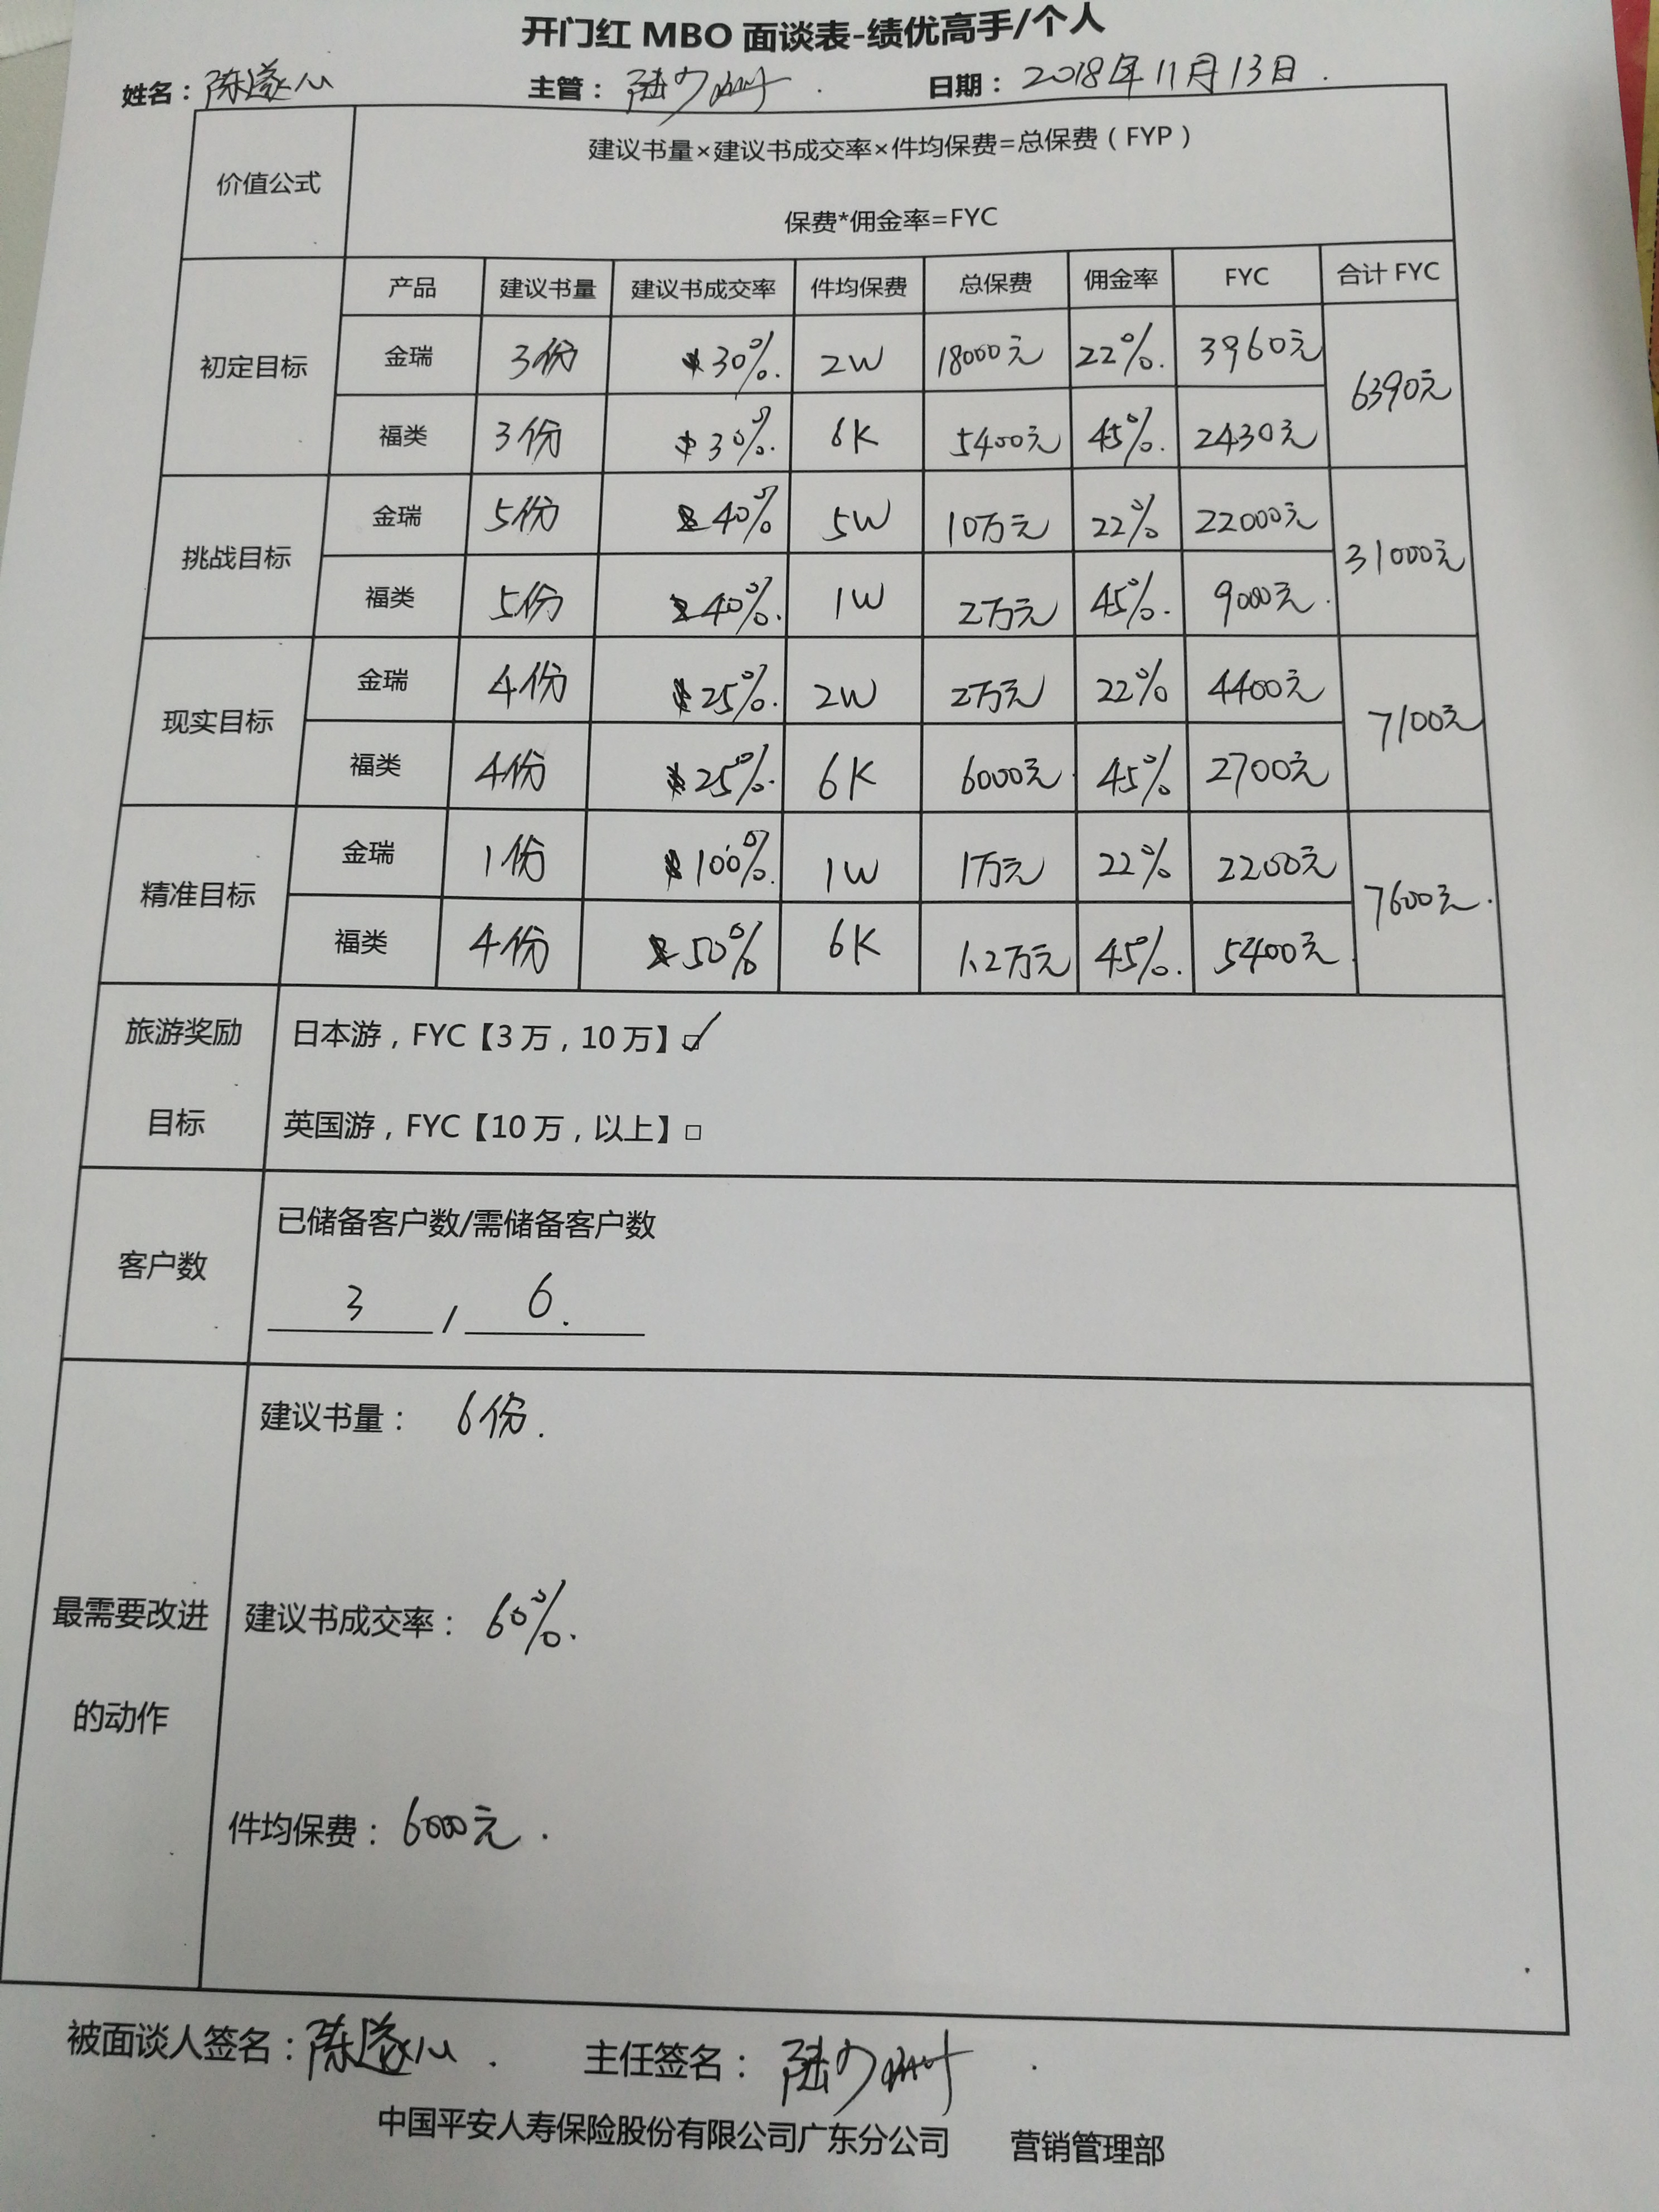 开门红 MBO 面谈表-绩优高手/个人
姓名：陈遂心 主管：陆少 日期：2018年11月13日.
价值公式
建议书量×建议书成交率×件均保费=总保费（FYP）
保费*佣金率=FYC
产品 建议书量 建议书成交率 件均保费 总保费 佣金率 FYC 合计 FYC
初定目标
金瑞 3份 30%. 2W 18000元 22%. 3960元
6390元
福类 3份 30%. 6K 5400元 45%. 2430元
挑战目标
金瑞 5份 40% 5W 10万元 22% 22000元
31000元
福类 5份 40%. 1W 2万元 45%. 9000元.
现实目标
金瑞 4份 25%. 2W 2万元 22% 4400元
7100元
福类 4份 25%. 6K 6000元. 45% 2700元
精准目标
金瑞 1份 100%. 1W 1万元 22% 2200元
7600元.
福类 4份 50% 6K 1.2万元 45%. 5400元.
旅游奖励
目标
日本游，FYC【3万，10万】☑
英国游，FYC【10万，以上】□
客户数
已储备客户数/需储备客户数
3 / 6.
最需要改进
的动作
建议书量： 6份.
建议书成交率： 60%.
件均保费： 6000元.
被面谈人签名：陈遂心. 主任签名：陆少
中国平安人寿保险股份有限公司广东分公司 营销管理部